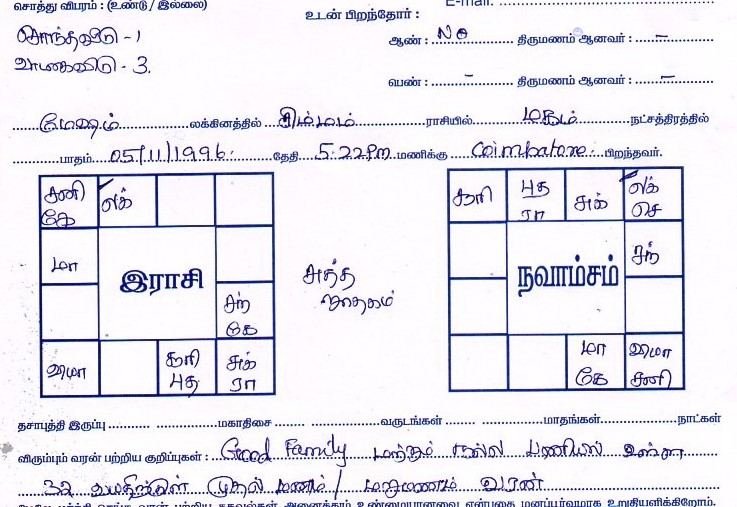 சொத்து விபரம் : (உண்டு / இல்லை)
E-mail:
சொந்தவீடு - 1
வாடகைவீடு - 3.
உடன் பிறந்தோர் :
ஆண் : No திருமணம் ஆனவர் : -
பெண் : - திருமணம் ஆனவர் : -
மேஷம் லக்கினத்தில் சிம்மம் ராசியில் மகம் நட்சத்திரத்தில்
மாதம் 05/11/1996. தேதி 5.22PM மணிக்கு Coimbatore. பிறந்தவர்.
சனி கே
லக்
மா
இராசி
சந் கே
மா
சூரி புத
சுக் ரா
சுத்த ஜாதகம்
சூரி
புத ரா
சுக்
லக் செ
நவாம்சம்
சந்
மா கே
சனி
தசாபுத்தி இருப்பு ........... மகாதிசை ........... வருடங்கள் ........... மாதங்கள் ........... நாட்கள்
விரும்பும் வரன் பற்றிய குறிப்புகள் : Good Family மற்றும் நல்ல பணியில் உள்ள
32 வயதிற்குள் முதல் மணம் / மறுமணம் வரன்